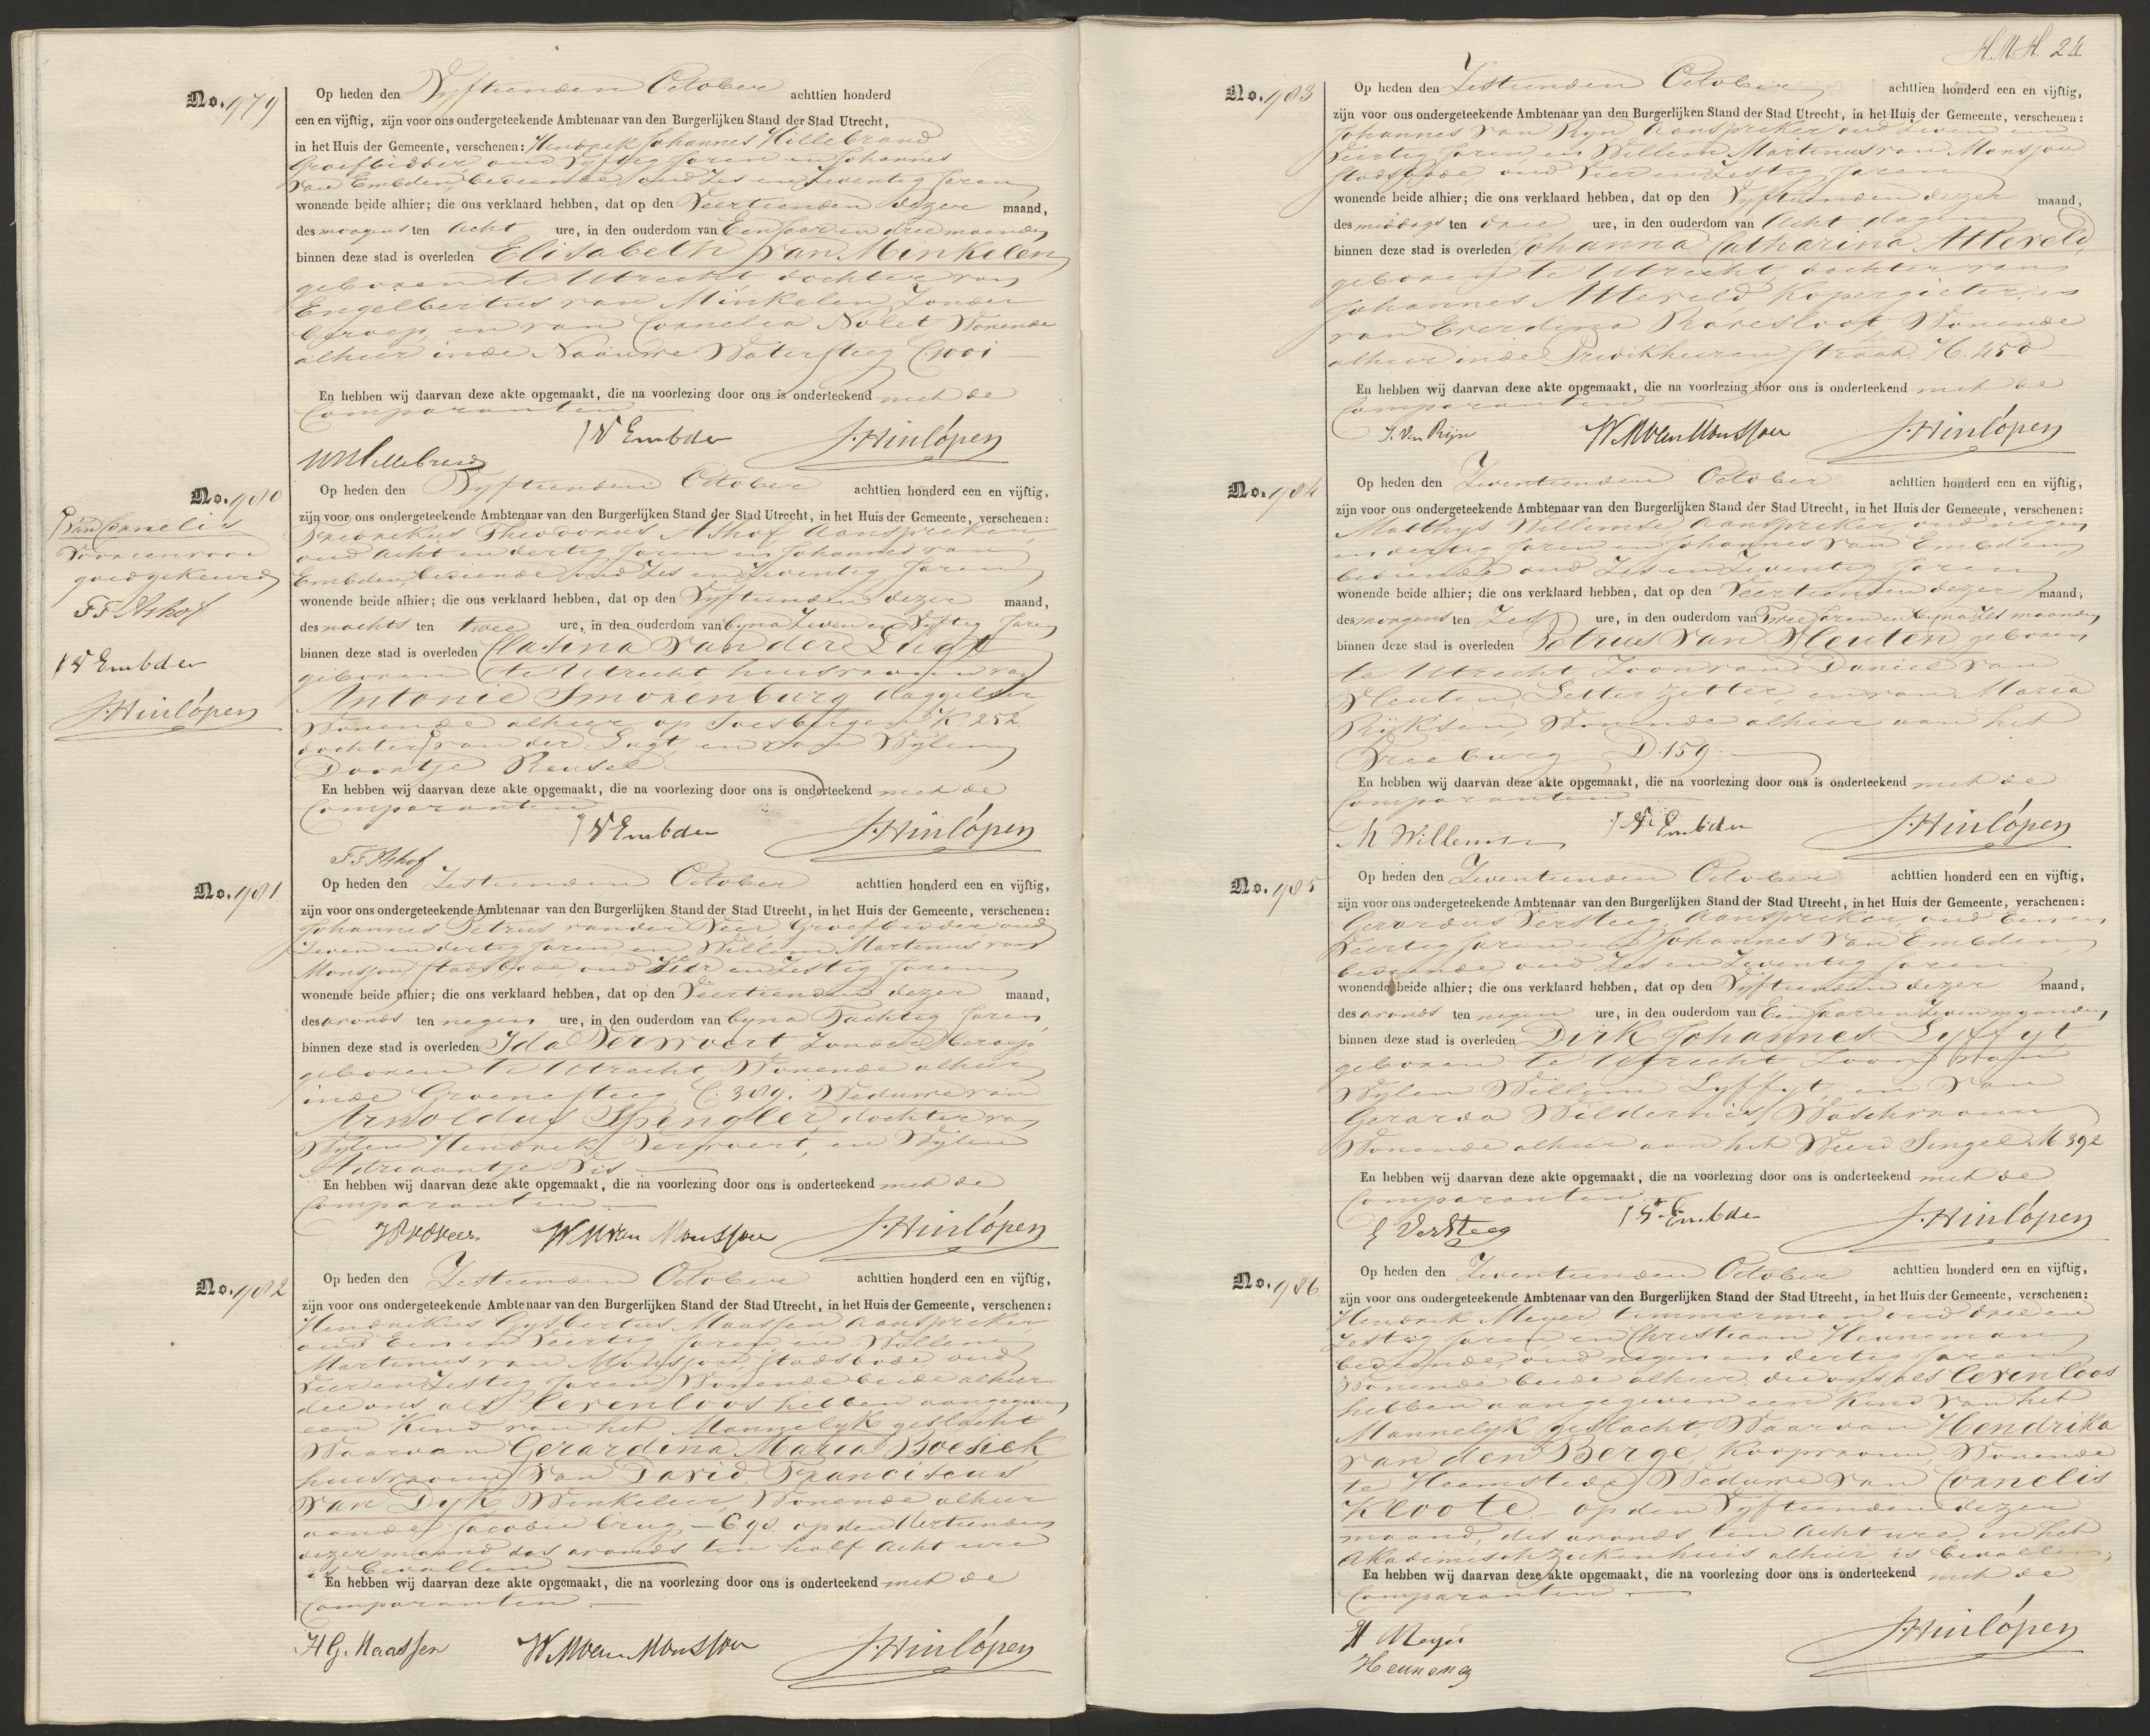 No. 979
Op heden den Vyftienden October achttien honderd
een en vijftig, zijn voor ons ondergeteekende Ambtenaar van den Burgerlijken Stand der Stad Utrecht,
in het Huis der Gemeente, verschenen: Hendrik Johannes Hillebrand
Groefbidder oud Vyftig Jaren en Johannes
van Embden, bediende, oud Zes en Zeventig Jaren
wonende beide alhier; die ons verklaard hebben, dat op den Veertienden dezer maand,
des morgens ten Acht ure, in den ouderdom van Een Jaar en drie maanden
binnen deze stad is overleden Elisabeth van Minkelen,
geboren te Utrecht, dochter van
Engelbertus van Minkelen, Zonder
beroep, en van Cornelia Nolet, Wonende
alhier in de Naauwe Watersteeg C. 1001
En hebben wij daarvan deze akte opgemaakt, die na voorlezing door ons is onderteekend met de
Comparanten
J V Embden J. Hinlópen
Hillebrand
No. 980
Op heden den Vyftienden October achttien honderd een en vijftig,
zijn voor ons ondergeteekende Ambtenaar van den Burgerlijken Stand der Stad Utrecht, in het Huis der Gemeente, verschenen:
Fredrikus Theodorus Ashof, Aanspreker,
oud Acht en dertig Jaren en Johannes van
Embden, bediende, oud Zes en Zeventig Jaren
wonende beide alhier; die ons verklaard hebben, dat op den Vyftienden dezer maand,
des nachts ten twee ure, in den ouderdom van byna Zeven en Vyftig Jaren
binnen deze stad is overleden Clasina van der Lugt
geboren te Utrecht, huisvrouw van
Antonie Smorenburg, daggelder
Wonende alhier op Soesbergen K. 252
dochter van der Lugt, en van Wylen
Doortje Reusel
En hebben wij daarvan deze akte opgemaakt, die na voorlezing door ons is onderteekend met de
Comparanten
J V Embden J. Hinlópen
F F Ashof
van Cornelis
goedgekeurd
F F Ashof
J V Embden
J. Hinlópen
No. 981
Op heden den Zestienden October achttien honderd een en vijftig,
zijn voor ons ondergeteekende Ambtenaar van den Burgerlijken Stand der Stad Utrecht, in het Huis der Gemeente, verschenen:
Johannes Petrus van der Veer, Groefbidder oud
Zeven en dertig Jaren en Willem Martinus van
Monsjou, Stadsbode, oud Vier en Zestig Jaren
wonende beide alhier; die ons verklaard hebben, dat op den Veertienden dezer maand,
des avonds ten negen ure, in den ouderdom van byna Tachtig Jaren,
binnen deze stad is overleden Ida Vervoort, Zonder beroep
geboren te Utrecht, Wonende alhier
in de Groenesteeg C. 309. Weduwe van
Arnoldus Spengler, dochter van
Wylen Hendrik Vervoort, en Wylen
Adriaantje Vis
En hebben wij daarvan deze akte opgemaakt, die na voorlezing door ons is onderteekend met de
Comparanten
W M van Monsjou J. Hinlópen
No. 982
Op heden den Zestienden October achttien honderd een en vijftig,
zijn voor ons ondergeteekende Ambtenaar van den Burgerlijken Stand der Stad Utrecht, in het Huis der Gemeente, verschenen:
Hendrikus Gysbertus Maassen Aanspreker
oud Een en Veertig Jaren, en Willem
Martinus van Monsjou, Stadsbode oud
Vier en Zestig Jaren, Wonende beide alhier
die ons als levenloos hebben aangegeven
een Kind van het Mannelyk geslacht
Waarvan Gerardina Maria Boesck
huisvrouw van David Franciscus
van Dyk, Winkelier, Wonende alhier
aan de Jacobie brug, C 98. op den Vertienden
dezer maand des avonds ten half Acht ure
is bevallen
En hebben wij daarvan deze akte opgemaakt, die na voorlezing door ons is onderteekend met de
Comparanten
H G. Maassen W M van Monsjou J. Hinlópen
H.M.H. 24
No. 983
Op heden den Zestienden October achttien honderd een en vijftig,
zijn voor ons ondergeteekende Ambtenaar van den Burgerlijken Stand der Stad Utrecht, in het Huis der Gemeente, verschenen:
Johannes van Ryn, Aanspreker oud Zeven en
Veertig Jaren en Willem Martinus van Monsjou
Stadsbode, oud Vier en Zestig Jaren
wonende beide alhier; die ons verklaard hebben, dat op den Vyftienden dezer maand,
des middags ten drie ure, in den ouderdom van Acht dagen
binnen deze stad is overleden Johanna Catharina Atteveld,
geboren te Utrecht, dochter van
Johannes Atteveld, Kopergieter, en
van Everdina Roresloot, Wonende
alhier in de Predikheeren Straat H. 450
En hebben wij daarvan deze akte opgemaakt, die na voorlezing door ons is onderteekend met de
Comparanten
J. Van Rijn W M van Monsjou J. Hinlópen
No. 984
Op heden den Zeventienden October achttien honderd een en vijftig,
zijn voor ons ondergeteekende Ambtenaar van den Burgerlijken Stand der Stad Utrecht, in het Huis der Gemeente, verschenen:
Matthys Willemse, Aanspreker, oud negen
en dertig Jaren en Johannes van Embden,
bediende oud Zes en Zeventig Jaren
wonende beide alhier; die ons verklaard hebben, dat op den Veertienden dezer maand,
des morgens ten Zes ure, in den ouderdom van Twee Jaren en byna Zes maanden
binnen deze stad is overleden Petrus van Vleuten, geboren
te Utrecht, Zoon van Daniel van
Vleuten, Letter Zetter, en van Maria
Rijksen, Wonende alhier aan het
Vreeburg D. 159
En hebben wij daarvan deze akte opgemaakt, die na voorlezing door ons is onderteekend met de
Comparanten
M Willemse J V Embden J. Hinlópen
No. 985
Op heden den Zeventienden October achttien honderd een en vijftig,
zijn voor ons ondergeteekende Ambtenaar van den Burgerlijken Stand der Stad Utrecht, in het Huis der Gemeente, verschenen:
Gerardus Versteeg, Aanspreker, oud Een en
Veertig Jaren en Johannes van Embden
bediende, oud Zes en Zeventig Jaren
wonende beide alhier; die ons verklaard hebben, dat op den Vyftienden dezer maand,
des avonds ten negen ure, in den ouderdom van Een Jaar en Zeven maanden
binnen deze stad is overleden Dirk Johannes Lyffyt
geboren te Utrecht Zoon van
Wylen Willem Lyffyt, en van
Gerarda Wildernis, Waschvrouw
Wonende alhier aan het Weerd Singel M. 392
En hebben wij daarvan deze akte opgemaakt, die na voorlezing door ons is onderteekend met de
Comparanten
G Versteeg J V Embden J. Hinlópen
No. 986
Op heden den Zeventienden October achttien honderd een en vijftig,
zijn voor ons ondergeteekende Ambtenaar van den Burgerlijken Stand der Stad Utrecht, in het Huis der Gemeente, verschenen:
Hendrik Meyer timmerman oud drie en
Zestig Jaren en Christiaan Henneman
bediende, oud negen en dertig Jaren
Wonende beide alhier, die ons als levenloos
hebben aangegeven een Kind van het
Mannelyk geslacht, Waarvan Hendrika
van den Berge, Koopvrouw, Wonende
te Heemstede, Weduwe van Cornelis
Kloote, op den Vyftienden dezer
maand, des avonds ten Acht ure, in het
Akademisch Ziekenhuis alhier is bevallen,
En hebben wij daarvan deze akte opgemaakt, die na voorlezing door ons is onderteekend met de
Comparanten
H Meyer J. Hinlópen
Henneman